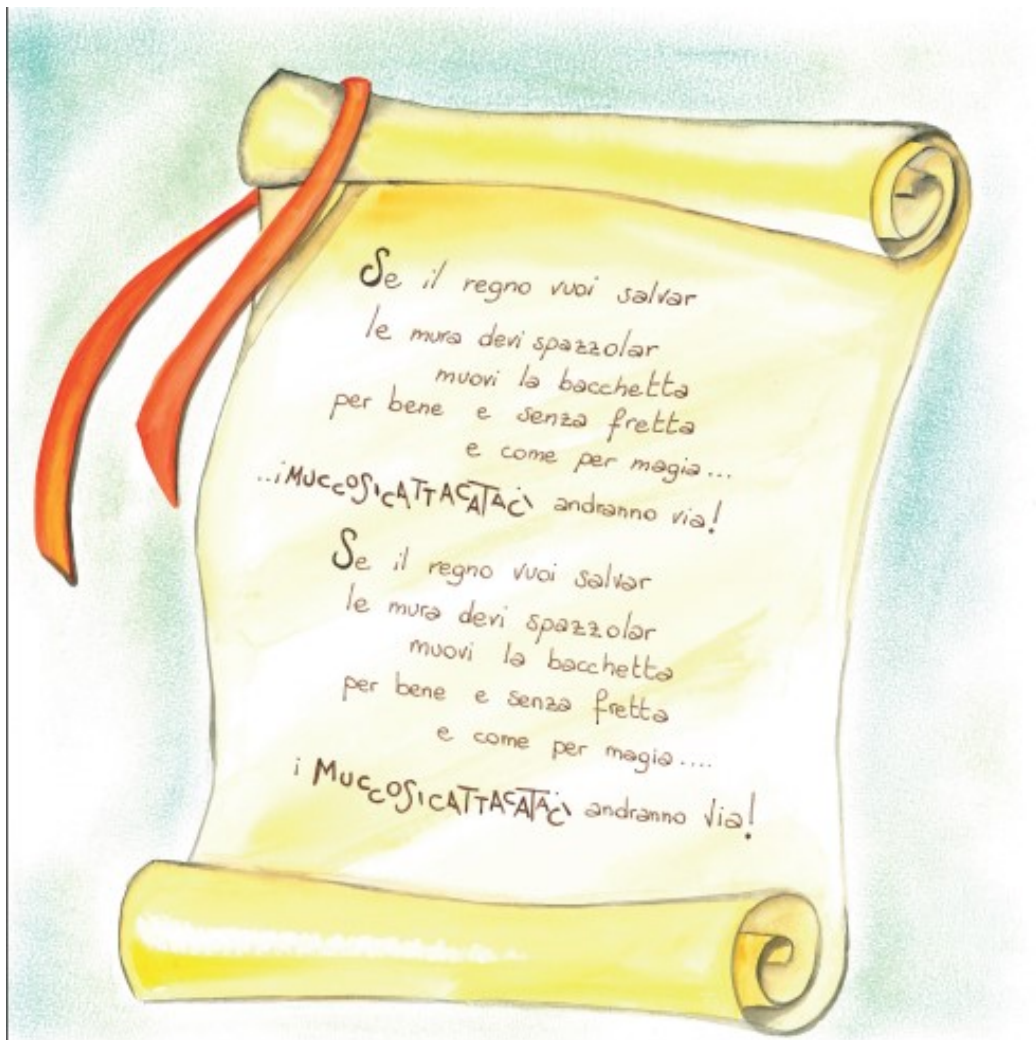 Se il regno vuoi salvar
le mura devi spazzolar
muovi la bacchetta
per bene e senza fretta
e come per magia...
...i MUCCOSICATTACATACì andranno via!
Se il regno vuoi salvar
le mura devi spazzolar
muovi la bacchetta
per bene e senza fretta
e come per magia....
i MUCCOSICATTACATACì andranno via!